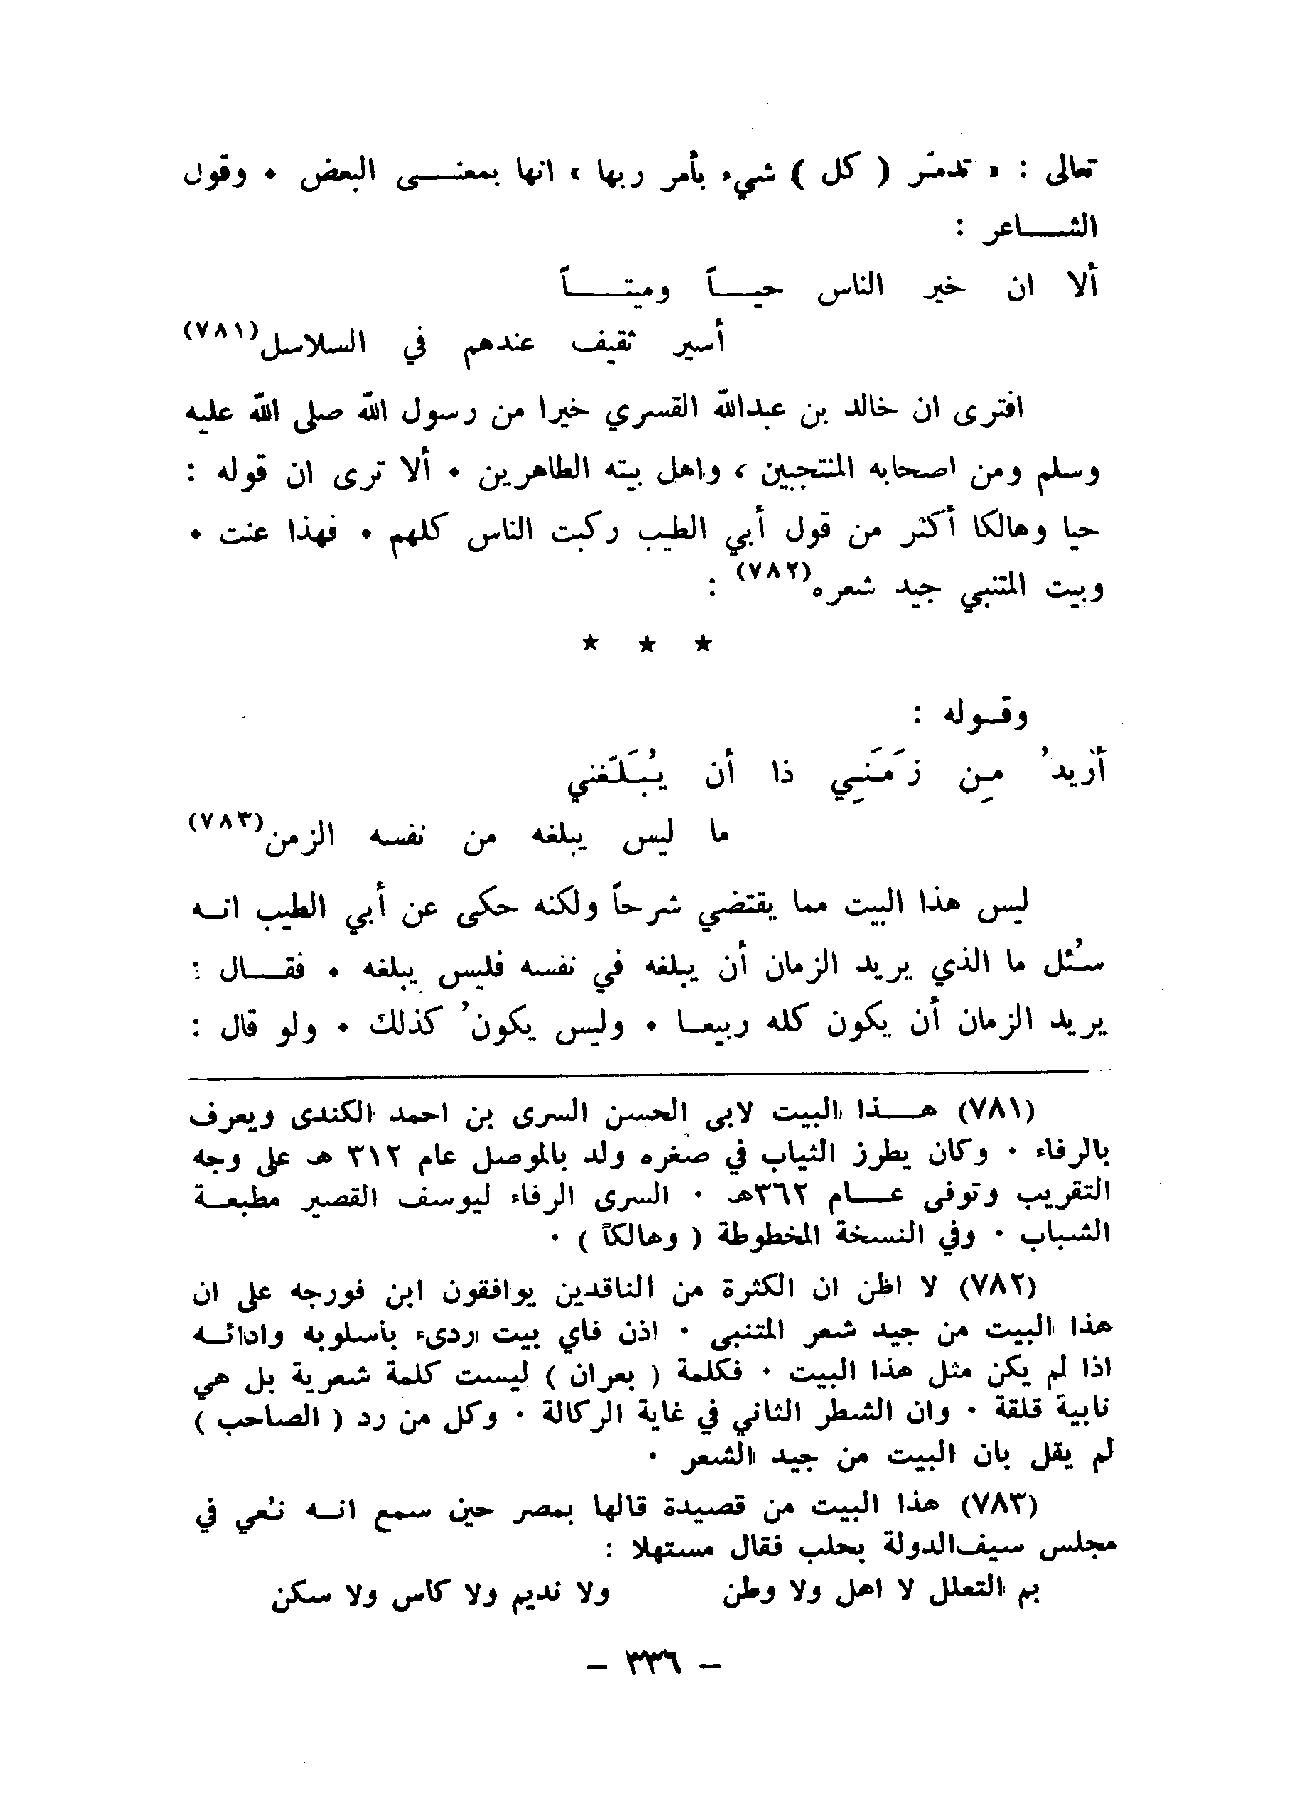 تعالى : « تدمّر ( كل ) شيء بأمر ربها » انها بمعنـى البعض ٠ وقول
الشـاعر :
ألا ان خير الناس حيـاً وميتـاً
أسير ثقيف عندهم في السلاسل(٧٨١)
افترى ان خالد بن عبدالله القسري خيرا من رسول الله صلى الله عليه
وسلم ومن اصحابه المنتجبين ، واهل بيته الطاهرين ٠ ألا ترى ان قوله :
حيا وهالكا أكثر من قول أبي الطيب ركبت الناس كلهم ٠ فهذا عنت ٠
وبيت المتنبي جيد شعره(٧٨٢) :
★ ★ ★
وقـوله :
أريدُ مِـن زَمَنِـي ذا أن يُبَلّغني
ما ليس يبلغه من نفسه الزمن(٧٨٣)
ليس هذا البيت مما يقتضي شرحاً ولكنه حكى عن أبي الطيب انـه
سُئل ما الذي يريد الزمان أن يبلغه في نفسه فليس يبلغه ٠ فقـال :
يريد الزمان أن يكون كله ربيعـا ٠ وليس يكونُ كذلك ٠ ولو قال :
(٧٨١) هـذا البيت لابى الحسن السرى بن احمد الكندى ويعرف
بالرفاء ٠ وكان يطرز الثياب في صغره ولد بالموصل عام ٣١٢ هـ على وجه
التقريب وتوفى عـام ٣٦٢هـ ٠ السرى الرفاء ليوسف القصير مطبعـة
الشباب ٠ وفي النسخة المخطوطة ( وهالكاً ) ٠
(٧٨٢) لا اظن ان الكثرة من الناقدين يوافقون ابن فورجه على ان
هذا البيت من جيد شعر المتنبى ٠ اذن فاي بيت ردىء بأسلوبه وادائـه
اذا لم يكن مثل هذا البيت ٠ فكلمة ( بعران ) ليست كلمة شعرية بل هي
نابية قلقة ٠ وان الشطر الثاني في غاية الركالة ٠ وكل من رد ( الصاحب )
لم يقل بان البيت من جيد الشعر ٠
(٧٨٣) هذا البيت من قصيدة قالها بمصر حين سمع انـه نُعي في
مجلس سيف‌الدولة بحلب فقال مستهلا :
بم التعلل لا اهل ولا وطن ولا نديم ولا كاس ولا سكن
– ٣٣٦ –